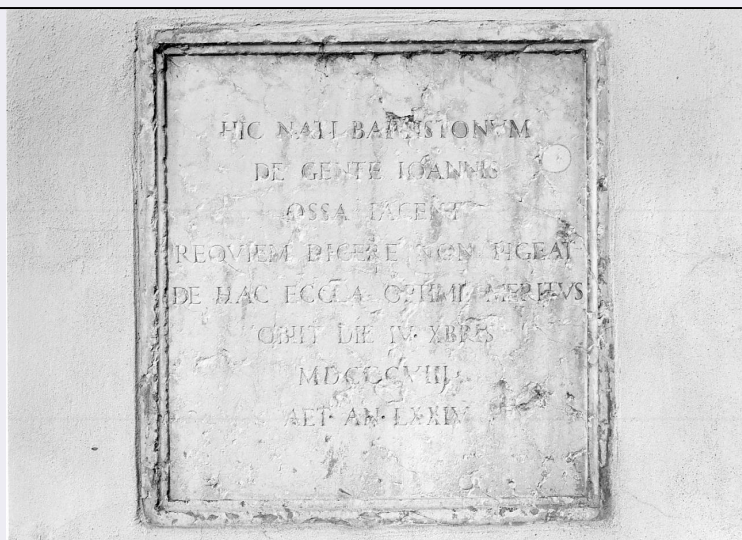 HIC NATI BAPTISTONVM
DE GENTE IOANNIS
OSSA IACENT
REQVIEM DICERE NON PIGEAT
DE HAC ECCLA OPTIME MERITVS
OBIIT DIE IV· XBRIS
MDCCCVIII·
AET· AN· LXXIV